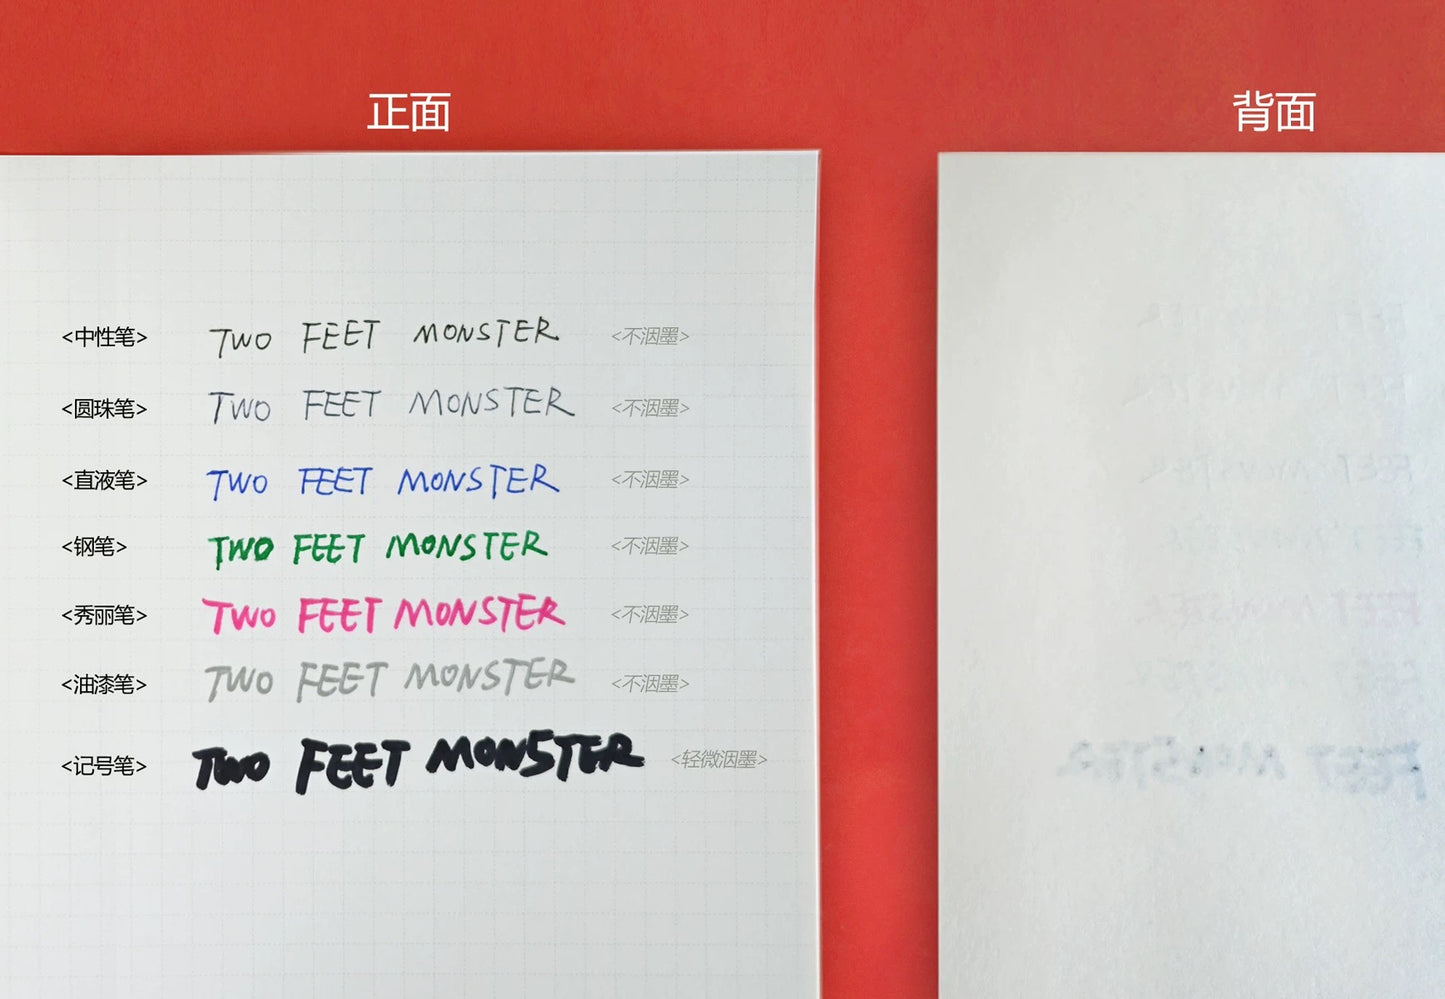 正面
背面
<中性笔> TWO FEET MONSTER <不洇墨>
<圆珠笔> TWO FEET MONSTER <不洇墨>
<直液笔> TWO FEET MONSTER <不洇墨>
<钢笔> TWO FEET MONSTER <不洇墨>
<秀丽笔> TWO FEET MONSTER <不洇墨>
<油漆笔> TWO FEET MONSTER <不洇墨>
<记号笔> TWO FEET MONSTER <轻微洇墨>